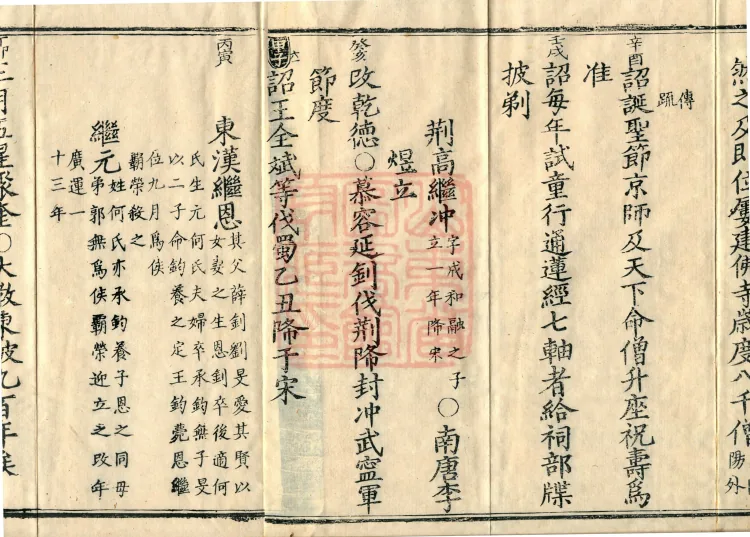 然之及即位屢建佛寺歲度八千僧
傳
疏
辛酉
詔誕聖節京師及天下命僧升座祝壽為
准
壬戌
詔每年試童行通蓮經七軸者給祠部牒
披剃
荊高繼冲
字成和融之子
立一年降宋
○南唐李
煜立
癸亥
改乾德○慕容延釗伐荊降封冲武寍軍
節度
甲子
六
詔王全斌等伐蜀乙丑降于宋
丙寅
東漢繼恩
其父薛釗劉旻愛其賢以
女妻之生恩釗卒後適何
氏生元何氏夫婦卒承鈞無子旻
以二子命鈞養之定王鈞薨恩繼
位九月為侯
霸榮殺之
繼元
姓何氏亦承鈞養子恩之同母
弟郭無為侯霸榮迎立之改年
廣運一
十三年
二月五星聚奎○大教東被乙百年矣